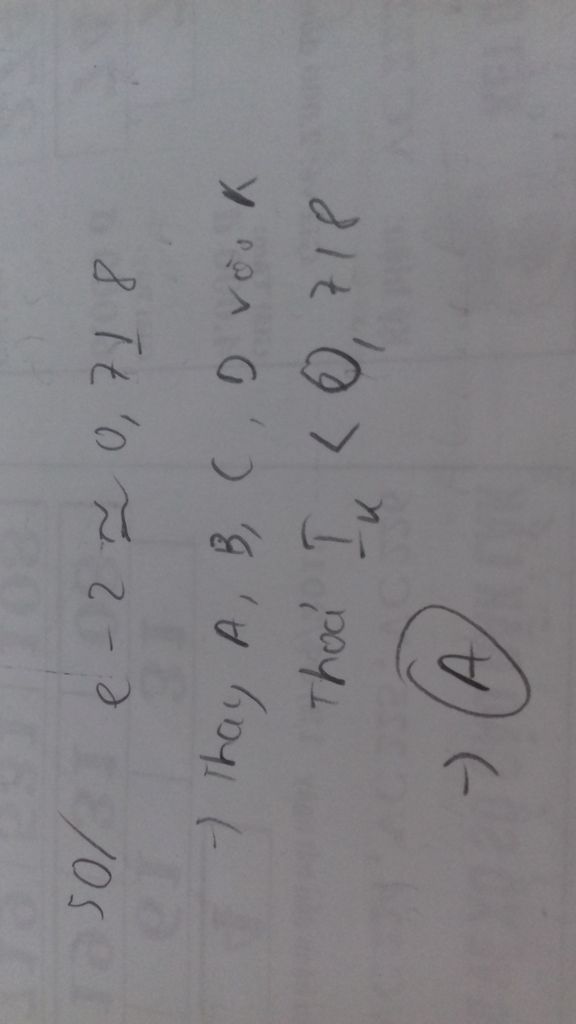 50/ e - 2 ≃ 0,718
→ Thay A, B, C, D với K
Thoả I_K < 0,718
→ A